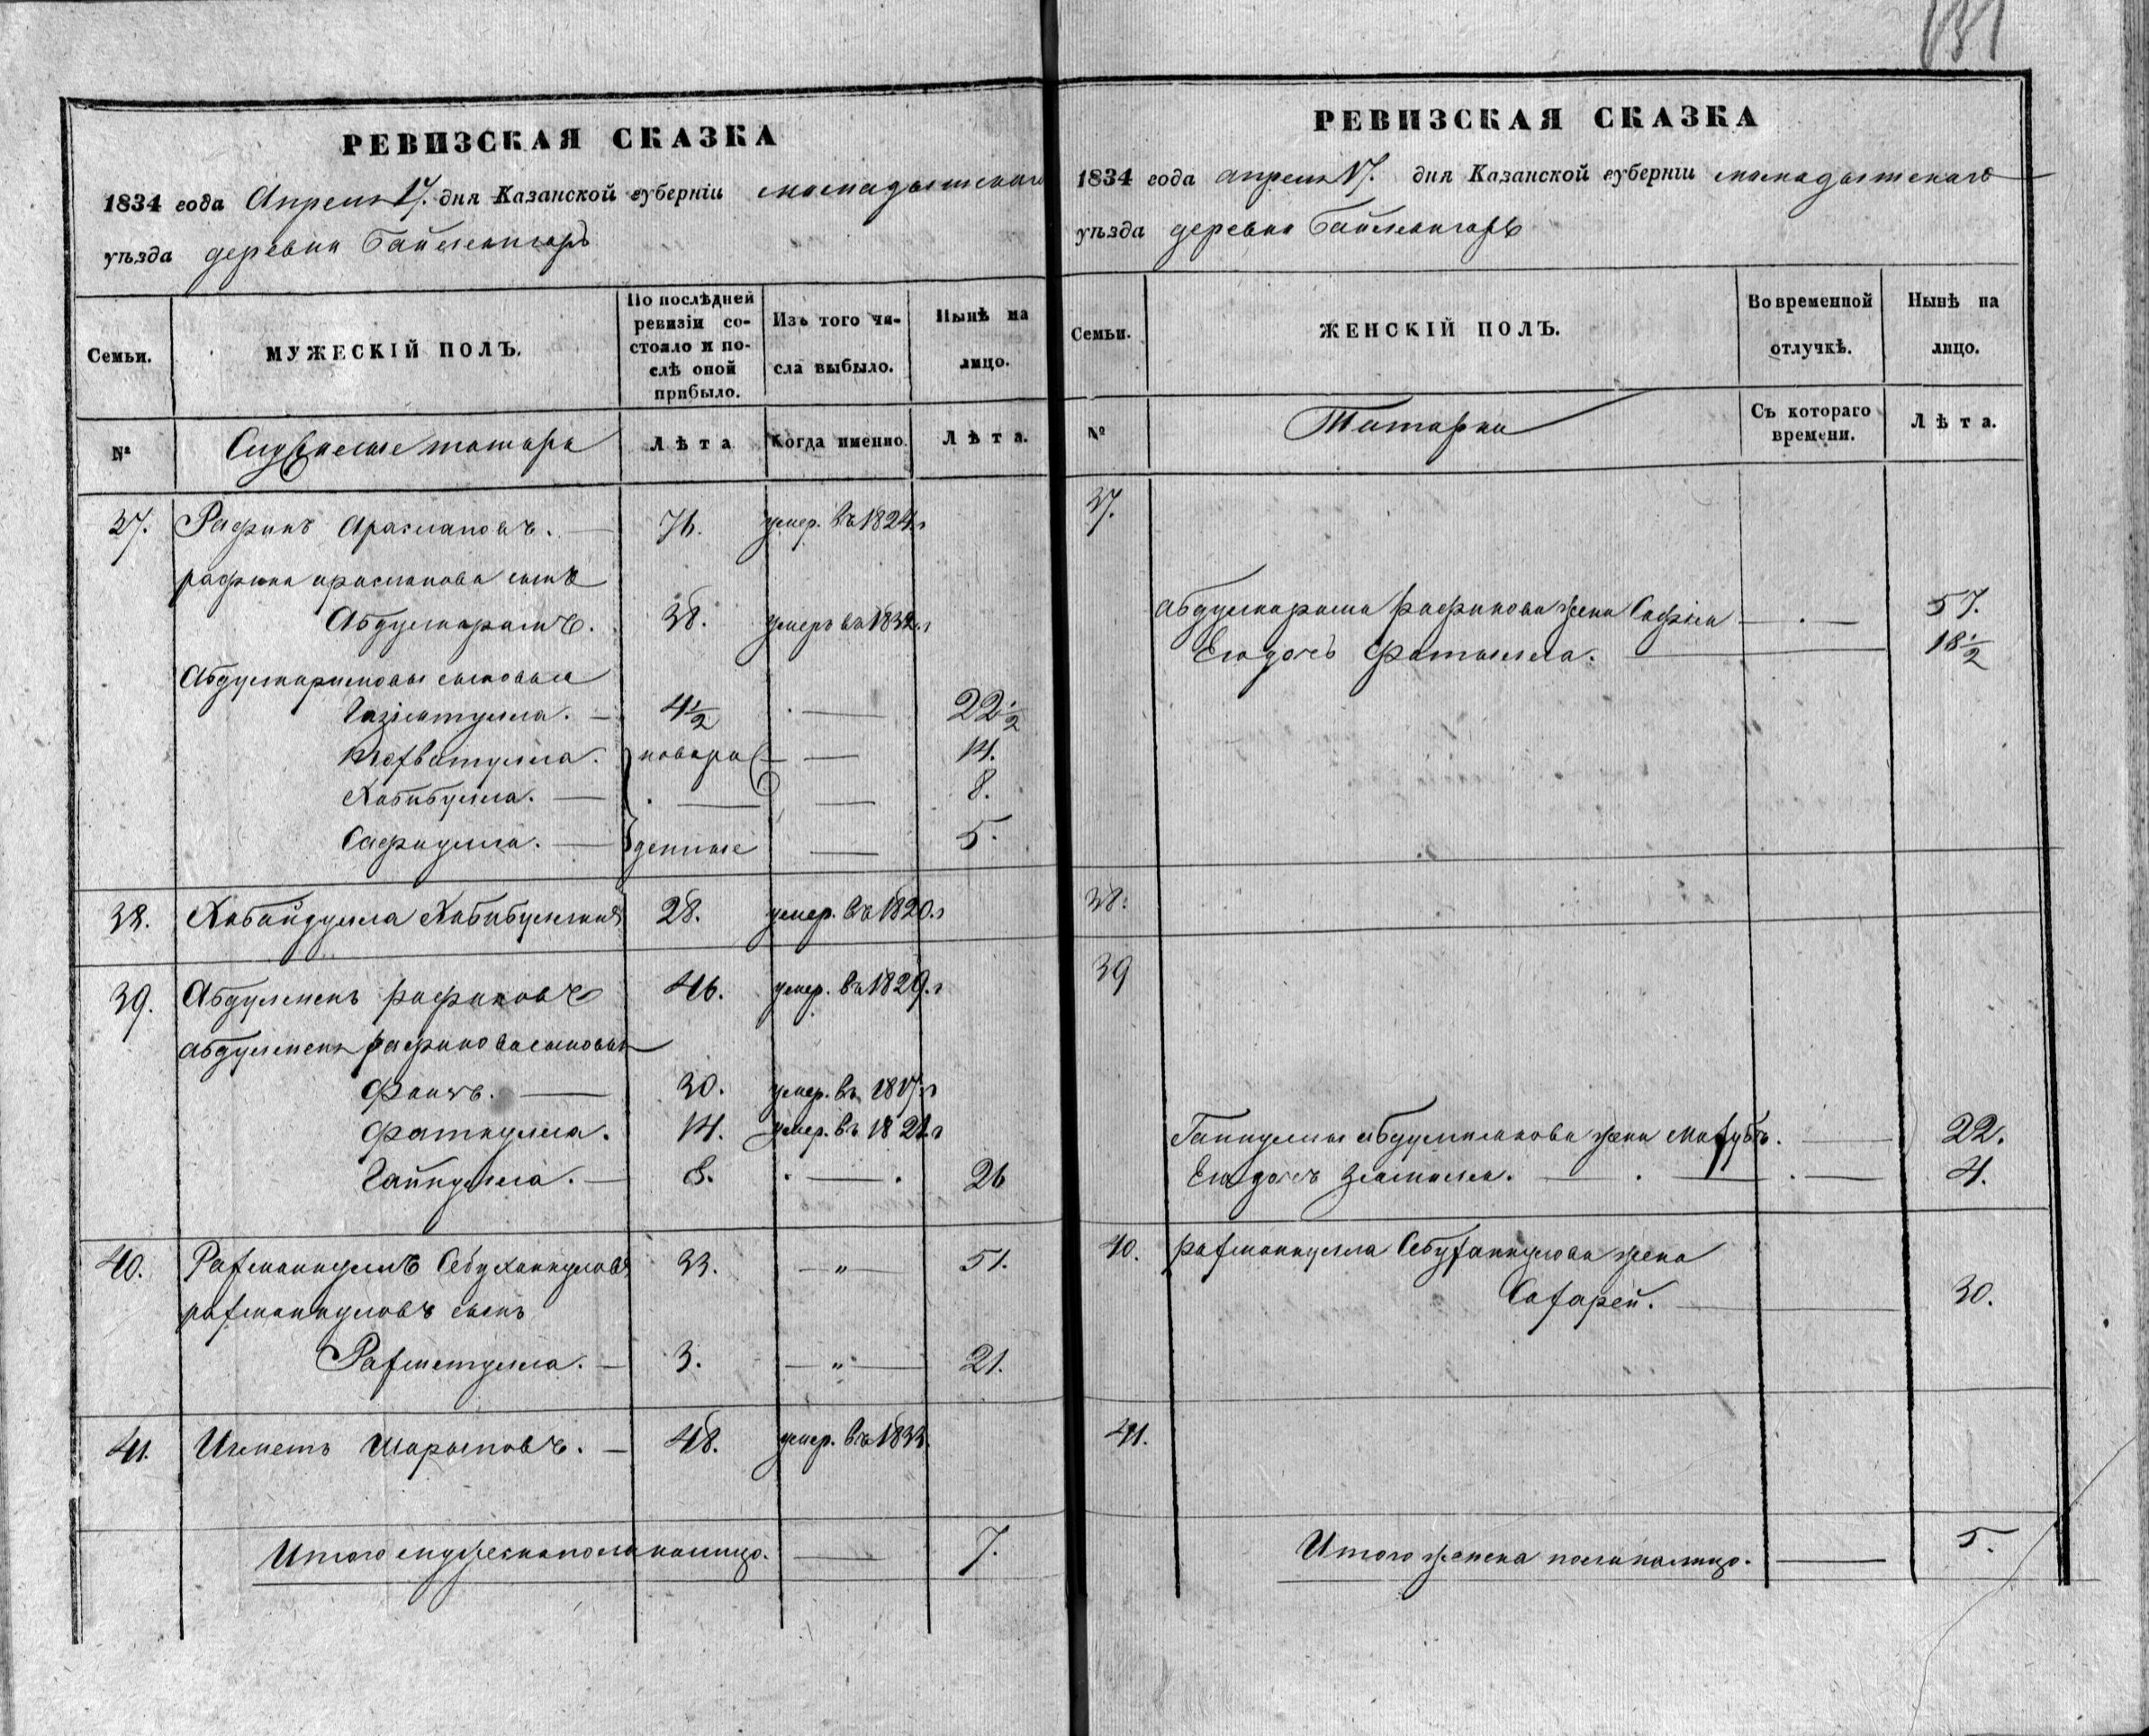 131
РЕВИЗСКАЯ СКАЗКА
1834 года Апреля 17. дня Казанской губернiи мамадышскаго
уѣзда деревни Баймангоръ
Семьи.
МУЖЕСКIЙ ПОЛЪ.
По послѣдней
ревизiи со-
стояло и по-
слѣ оной
прибыло.
Изъ того чи-
сла выбыло.
Нынѣ на
лицо.
№
татара
Лѣта
Когда именно.
Лѣта.
37. Рафикъ Араслановъ. 76. умер. въ 1824.г
рафика арасланова сынъ
Абдулкаримъ. 38. умеръ въ 1832.г
Абдулкаримовы сыновья
Газiатулла. 4 1/2 22 1/2
новоро 14.
Хабибулла. 8.
Сафиулла. жденные 5.
38. Хабайдулла Хабибуллинъ 28. умер. въ 1820.г
39. Абдулменъ рафиковъ 46. умер. въ 1829.г
абдулмена рафикова сыновья
Фаизъ. 30. умер. въ 1817.г
Фаткулла. 14. умер. въ 1821.г
Гайнулла. 8. 26
40. Рахманкулъ Сабуханкуловъ 33. — „ — 51.
рахманкуловъ сынъ
Рахметулла. 3. — „ — 21.
41. Ишметь Шариповъ. 48. умер. въ 1833.
Итого мужеска пола налицо. 7.
РЕВИЗСКАЯ СКАЗКА
1834 года апреля 17. дня Казанской губернiи мамадышскаго
уѣзда деревни Баймангоръ
Семьи.
ЖЕНСКIЙ ПОЛЪ.
Во временной
отлучкѣ.
Нынѣ на
лицо.
№
Татарки
Съ котораго
времени.
Лѣта.
37.
абдулкарима рафикова жена Сафiя 57.
Его дочь Фатыйма. 18 1/2
38.
39
Гайнуллы абдулменова жена Махубъ. 22.
Его дочь 4.
40. рахманкулла Сабуханкулова жена
Сахарей. 30.
41.
Итого женска пола налицо. 5.